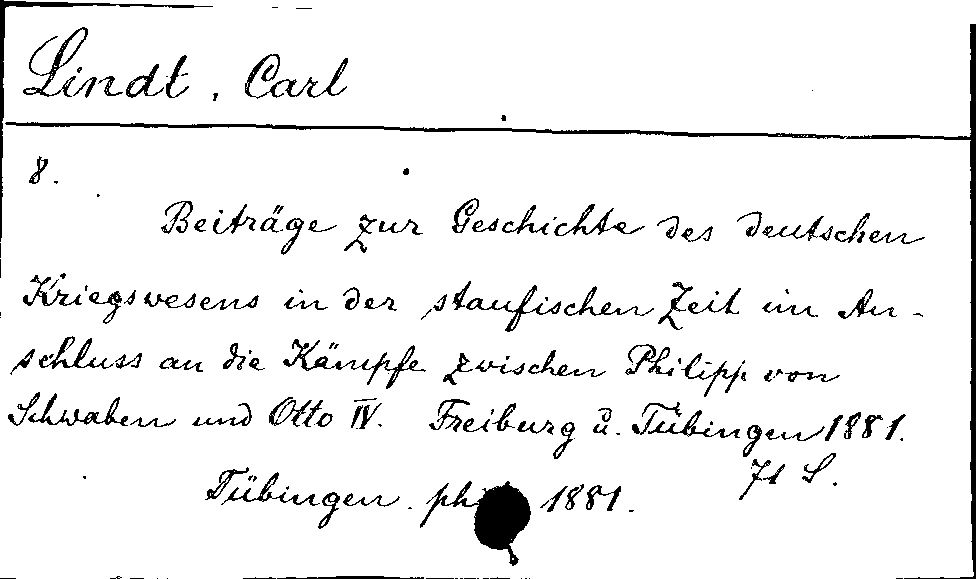 Lindt, Carl
8.
Beiträge zur Geschichte des deutschen
Kriegswesens in der staufischen Zeit im An-
schluss an die Kämpfe zwischen Philipp von
Schwaben und Otto IV. Freiburg u. Tübingen 1881.
71 S.
Tübingen. 1881.